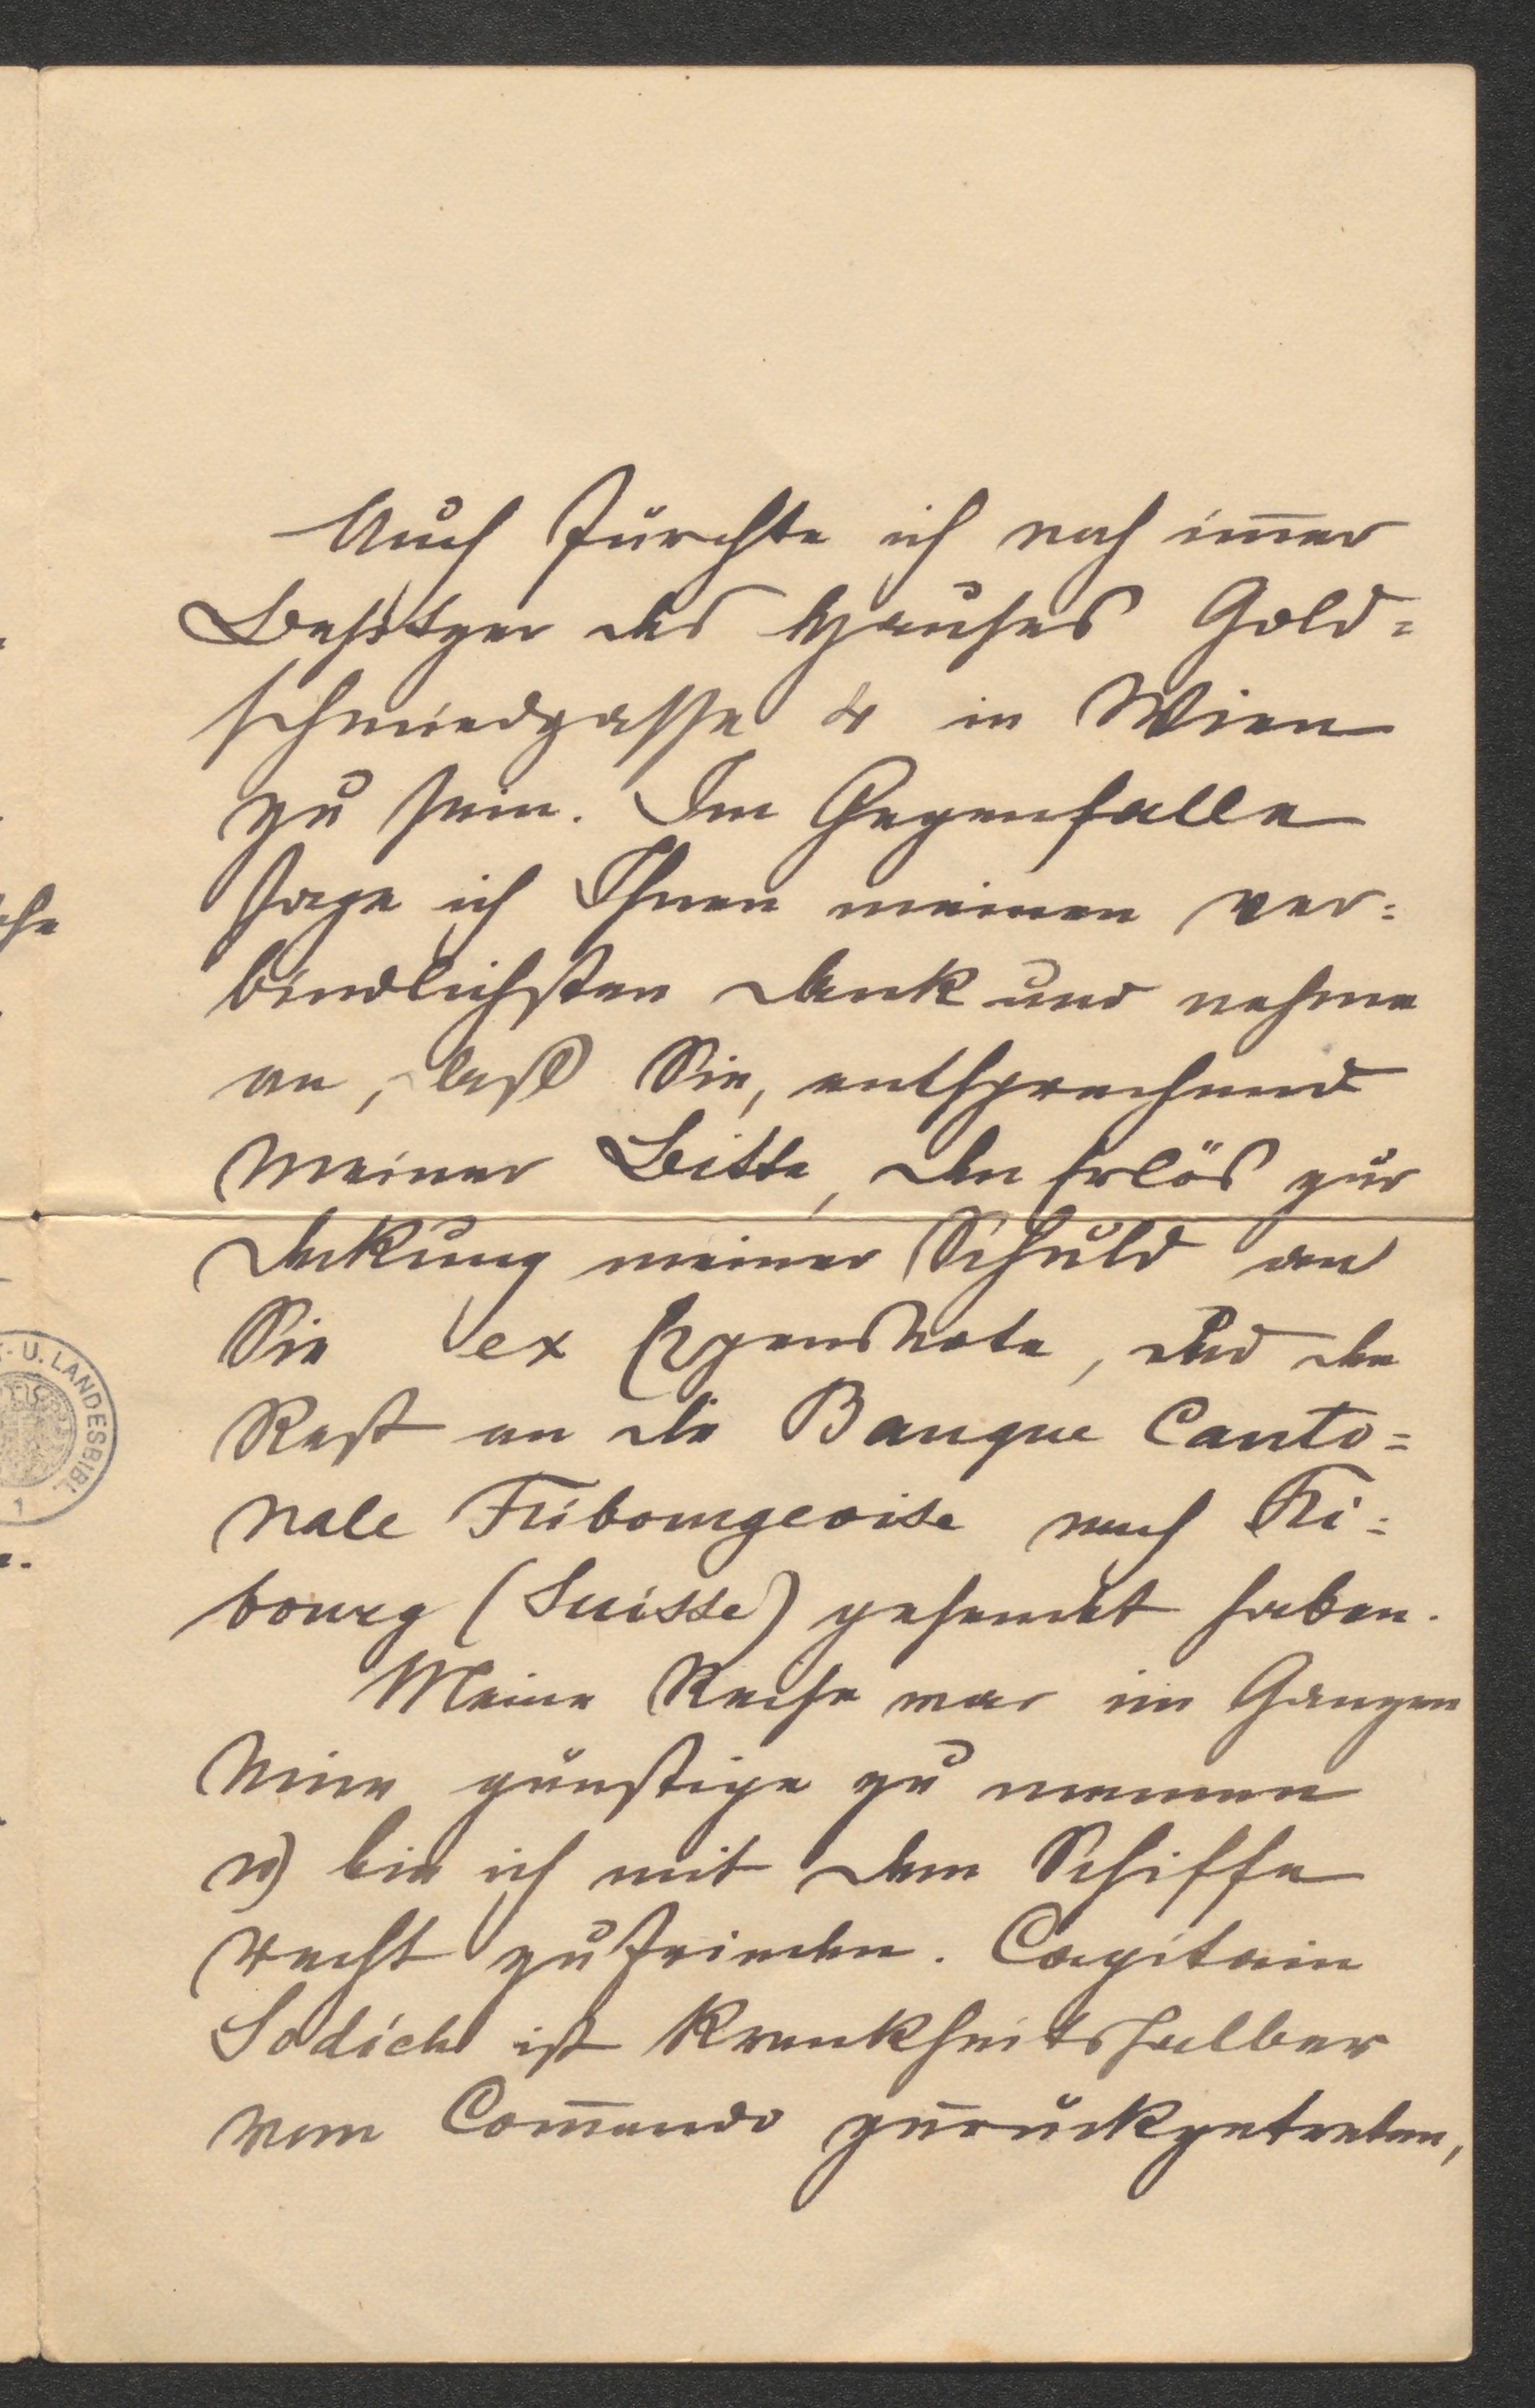 Auch fürchte ich noch im̄er
Besitzer des Hauses Gold=
schmiedgasse 4 in Wien
zu sein. Im Gegenfalle
sage ich Ihnen meinen ver=
bindlichsten Dank und nehme
an, daß Sie, entsprechend
meiner Bitte, den Erlös zur
Deckung meiner Schuld an
Sie ex Expensnote, und den
Rest an die Banque Canto=
nale Fribourgeoise nach Fri=
bourg (Suisse) gesendet haben.
Meine Reise war im Ganzen
eine günstige zu nennen
u) bin ich mit dem Schiffe
recht zufrieden. Capitain
Sodich ist krankheitshalber
vom Com̄ando zurückgetreten,
U. LANDESBIBL.